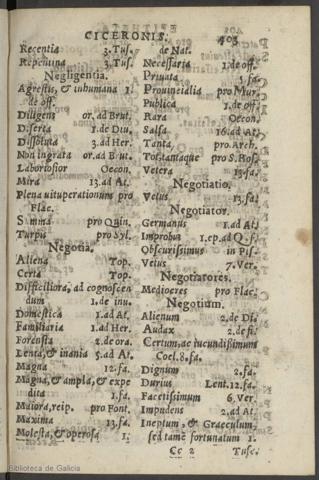 CICERONIS. 403
Recentia 3.Tus.
Repentina 3.Tus.
Negligentia.
Agrestis, & inhumana 1.
de off.
Diligens or. ad Brut.
Diserta 1.de Diu.
Dissoluta 3.ad Her.
Non ingrata or.ad Brut.
Laboriosior Oecon.
Mira 13.ad At.
Plena vituperationum pro
Flac.
Summa pro Quin.
Turpis pro Syl.
Negotia.
Aliena Top.
Certa Top.
Difficiliora, ad cognoscen
dum 1.de inu.
Domestica 1.ad At.
Familiaria 1.ad Her.
Forensia 2.de ora.
Lenta, & inania 5.ad At.
Magna 12.fa.
Magna, & ampla, & expe
dita 1.fa.
Maiora, reip. pro Font.
Maxima 13.fa.
Molesta, & operosa 1.
de Nat.
Necessaria 1.de off.
Priuata 5.fa.
Prouincialia pro Mur.
Publica 1.de off.
Rara Oecon.
Salsa 16.ad At.
Tanta pro Arch.
Tot, tantaque pro S.Ros.
Vetera 13.fa.
Negotiatio.
Vetus 13.fa.
Negotiator.
Germanus 1.ad At.
Improbus 1.ep.ad Q.f.
Obscurissimus in Pis.
Vetus 7.Ver.
Negotiatores.
Mediocres pro Flac.
Negotium.
Alienum 2.de Di.
Audax 2.de fi.
Certum, ac iucundissimum
Coel.8.fa.
Dignum 2.fa.
Durius Lent.12.fa.
Facetissimum 6.Ver.
Impudens 2.ad At.
Ineptum & Graeculum,
sed tamẽ fortunatum 1.
Cc 2 Tusc.
Biblioteca de Galicia